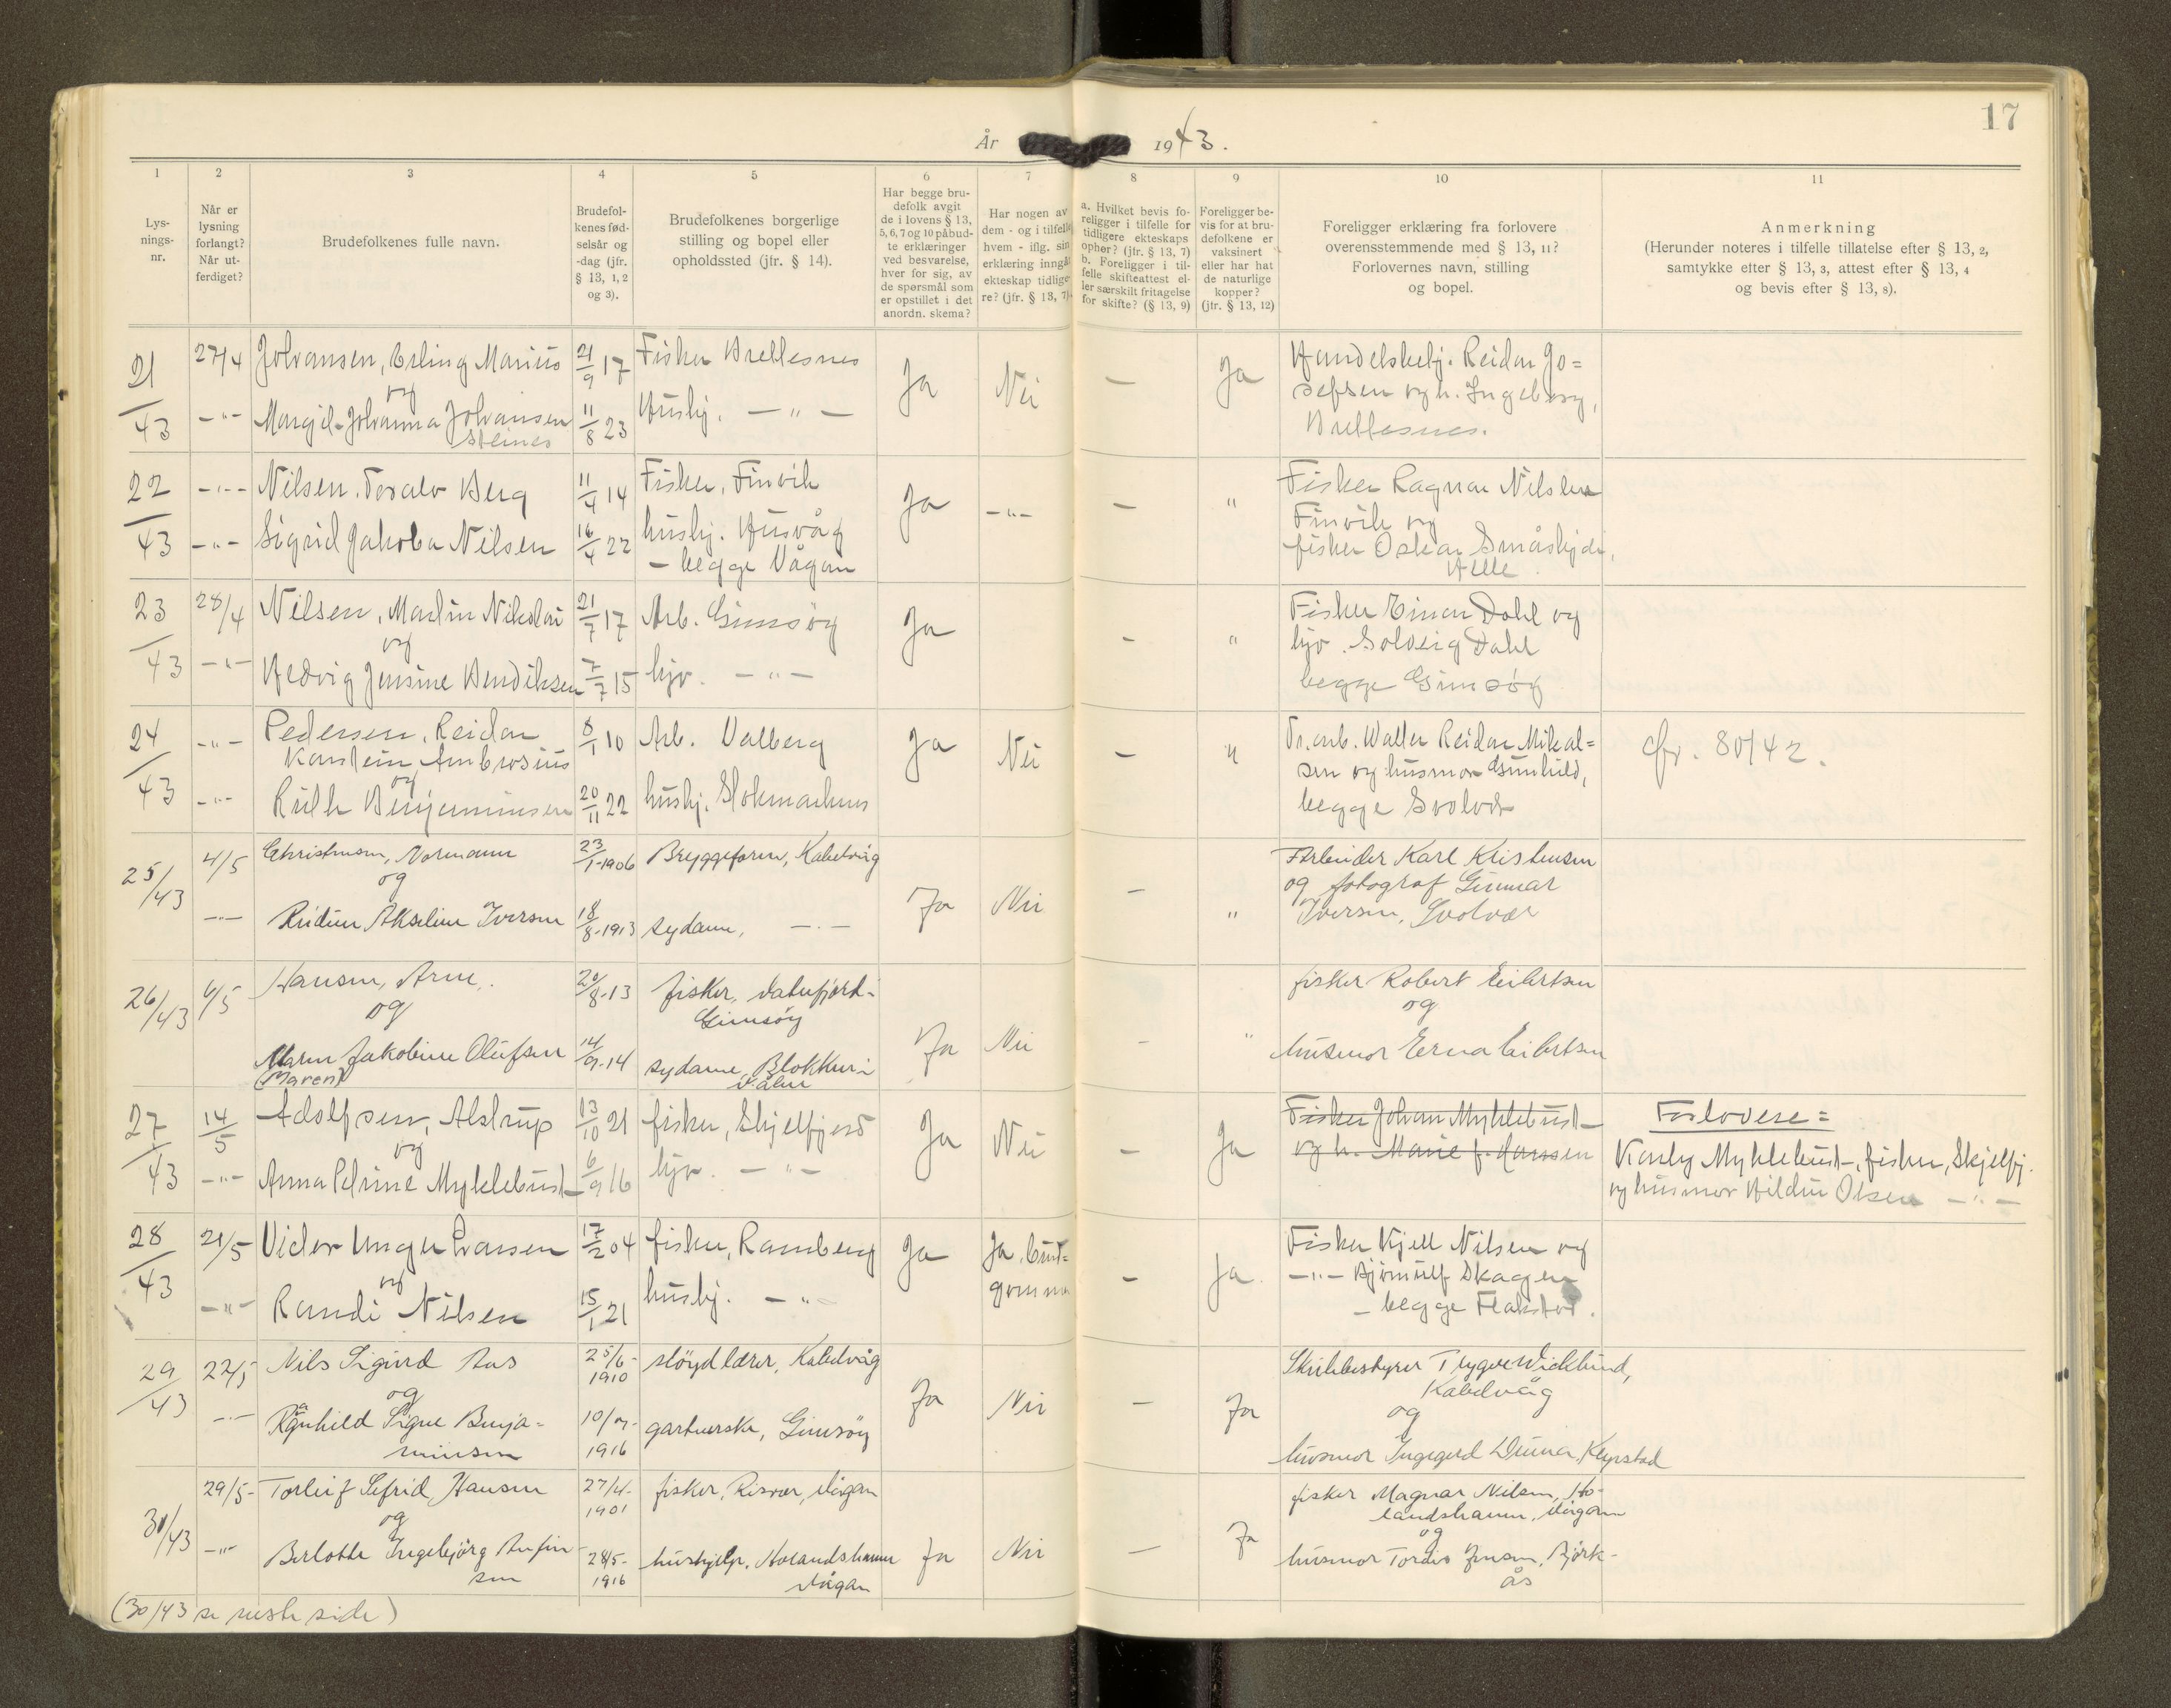 17
År 1943.
1 2 3 4 5 6 7 8 9 10 11
Lys-
nings-
nr.
Når er
lysning
forlangt?
Når ut-
ferdiget?
Brudefolkenes fulle navn.
Brudefol-
kenes fød-
selsår og
-dag (jfr.
§ 13, 1, 2
og 3).
Brudefolkenes borgerlige
stilling og bopel eller
opholdssted (jfr. § 14).
Har begge bru-
defolk avgit
de i lovens § 13,
5, 6, 7 og 10 påbud-
te erklæringer
ved besvarelse,
hver for sig, av
de spørsmål som
er opstillet i det
anordn. skema?
Har nogen av
dem - og i tilfelle
hvem - iflg. sin
erklæring inngå
ekteskap tidlige-
re? (jfr. § 13, 7).
a. Hvilket bevis fo-
religger i tilfelle for
tidligere ekteskaps
ophør? (jfr. § 13, 7)
b. Foreligger i til-
felle skifteattest el-
ler særskilt fritagelse
for skifte? (§ 13, 9)
Foreligger be-
vis for at bru-
defolkene er
vaksinert
eller har hat
de naturlige
kopper?
(jfr. § 13, 12)
Foreligger erklæring fra forlovere
overensstemmende med § 13, 11?
Forlovernes navn, stilling
og bopel.
Anmerkning
(Herunder noteres i tilfelle tillatelse efter § 13, 2,
samtykke efter § 13, 3, attest efter § 13, 4
og bevis efter § 13, 8).
21/43 27/4 Johansen, Erling Marius 21/9 17 Fisker Brettesnes Ja Nei — Ja Handelsbetj. Reidar Jo=
og sefsen og h. Ingeborg,
—"— Margit Johanna Johansen 11/8 23 Hushj. —"— Brettesnes.
Steines
22/43 —"— Nilsen, Toralv Berg 11/4 14 Fisker, Finvik Ja —"— — " Fisker Ragnar Nilsen
Finvik og
—"— Sigrid Jakoba Nilsen 16/4 22 hushj. Husvåg fisker Oskar
— begge Vågan Helle
23/43 28/4 Nilsen, Martin Nikolai 21/7 17 Arb. Gimsøy Ja — " Fisker Einar Dahl og
og hjv. Solveig Dahl
—"— Hedvig Jensine Bendiksen 7/7 15 hjv. —"— begge Gimsøy
24/43 —"— Pedersen, Reidar 8/1 10 Arb. Valberg Ja Nei — " Tr.arb. Walter Reidar Mikal= cfr. 80/42.
Karstein Ambrosius sen og husmor Gunhild,
og begge Svolvær
—"— Ruth Benjaminsen 20/11 22 hushj. Stokmarknes
25/43 4/5 Christensen, Normann 23/1-1906 Bryggeform, Kabelvåg Ja Nei — " Arbeider Karl Kristensen
og og fotograf Gunnar
—"— Reidun Akseline Iversen 18/8-1913 sydame, —"— Iversen, Svolvær
26/43 6/5 Hansen, Arne. 20/8-13 fisker, Vatnfjord- Ja Nei — " fisker Robert Eilertsen
og Gimsøy og
Maren Jakobine Olufsen 14/9-14 sydame, Blokken i husmor Erna Eilertsen
(Maren)
27/43 14/5 Adolfsen, Alstrup 13/10 21 fisker, Skjelfjord Ja Nei — Ja Fisker Johan Myklebust Forlovere =
og og h. Marie f. Hansen Karly Myklebust, fisker, Skjelfj.
—"— Anna Petrine Myklebust 6/9 16 hjv. —"— og husmor Hildur Olsen —"—
28/43 21/5 Vidar Unger Larssen 17/2 04 fisker, Ramberg Ja Ja, brud= — Ja. Fisker Kjell Nilsen og
og gommen —"— Bjørnulf Skagen
—"— Randi Nilsen 15/1 21 hushj. —"— — begge Flakstad.
29/43 22/5 Nils Sigurd Aas 25/6-1910 sløydlærer, Kabelvåg Ja Nei — Ja Skolebestyrer Trygve Wicklund,
og Kabelvåg
og
—"— Ragnhild Signe Benja= 10/9-1916 gartnerske, Gimsøy husmor Ingegerd Kleppstad
minsen
31/43 29/5- Torleif Sefrid Hansen 27/4-1901 fisker, Risvær, Vågan Ja Nei — Ja fisker Magnar Nilsen, Ho-
og landshamn, Vågan
og
—"— Berlotte Ingebjørg Anfin 28/5-1916 hushjelp, Holandshamn husmor Tordis Jensen, Bjørk-
sen Vågan ås
(30/43 se neste side)